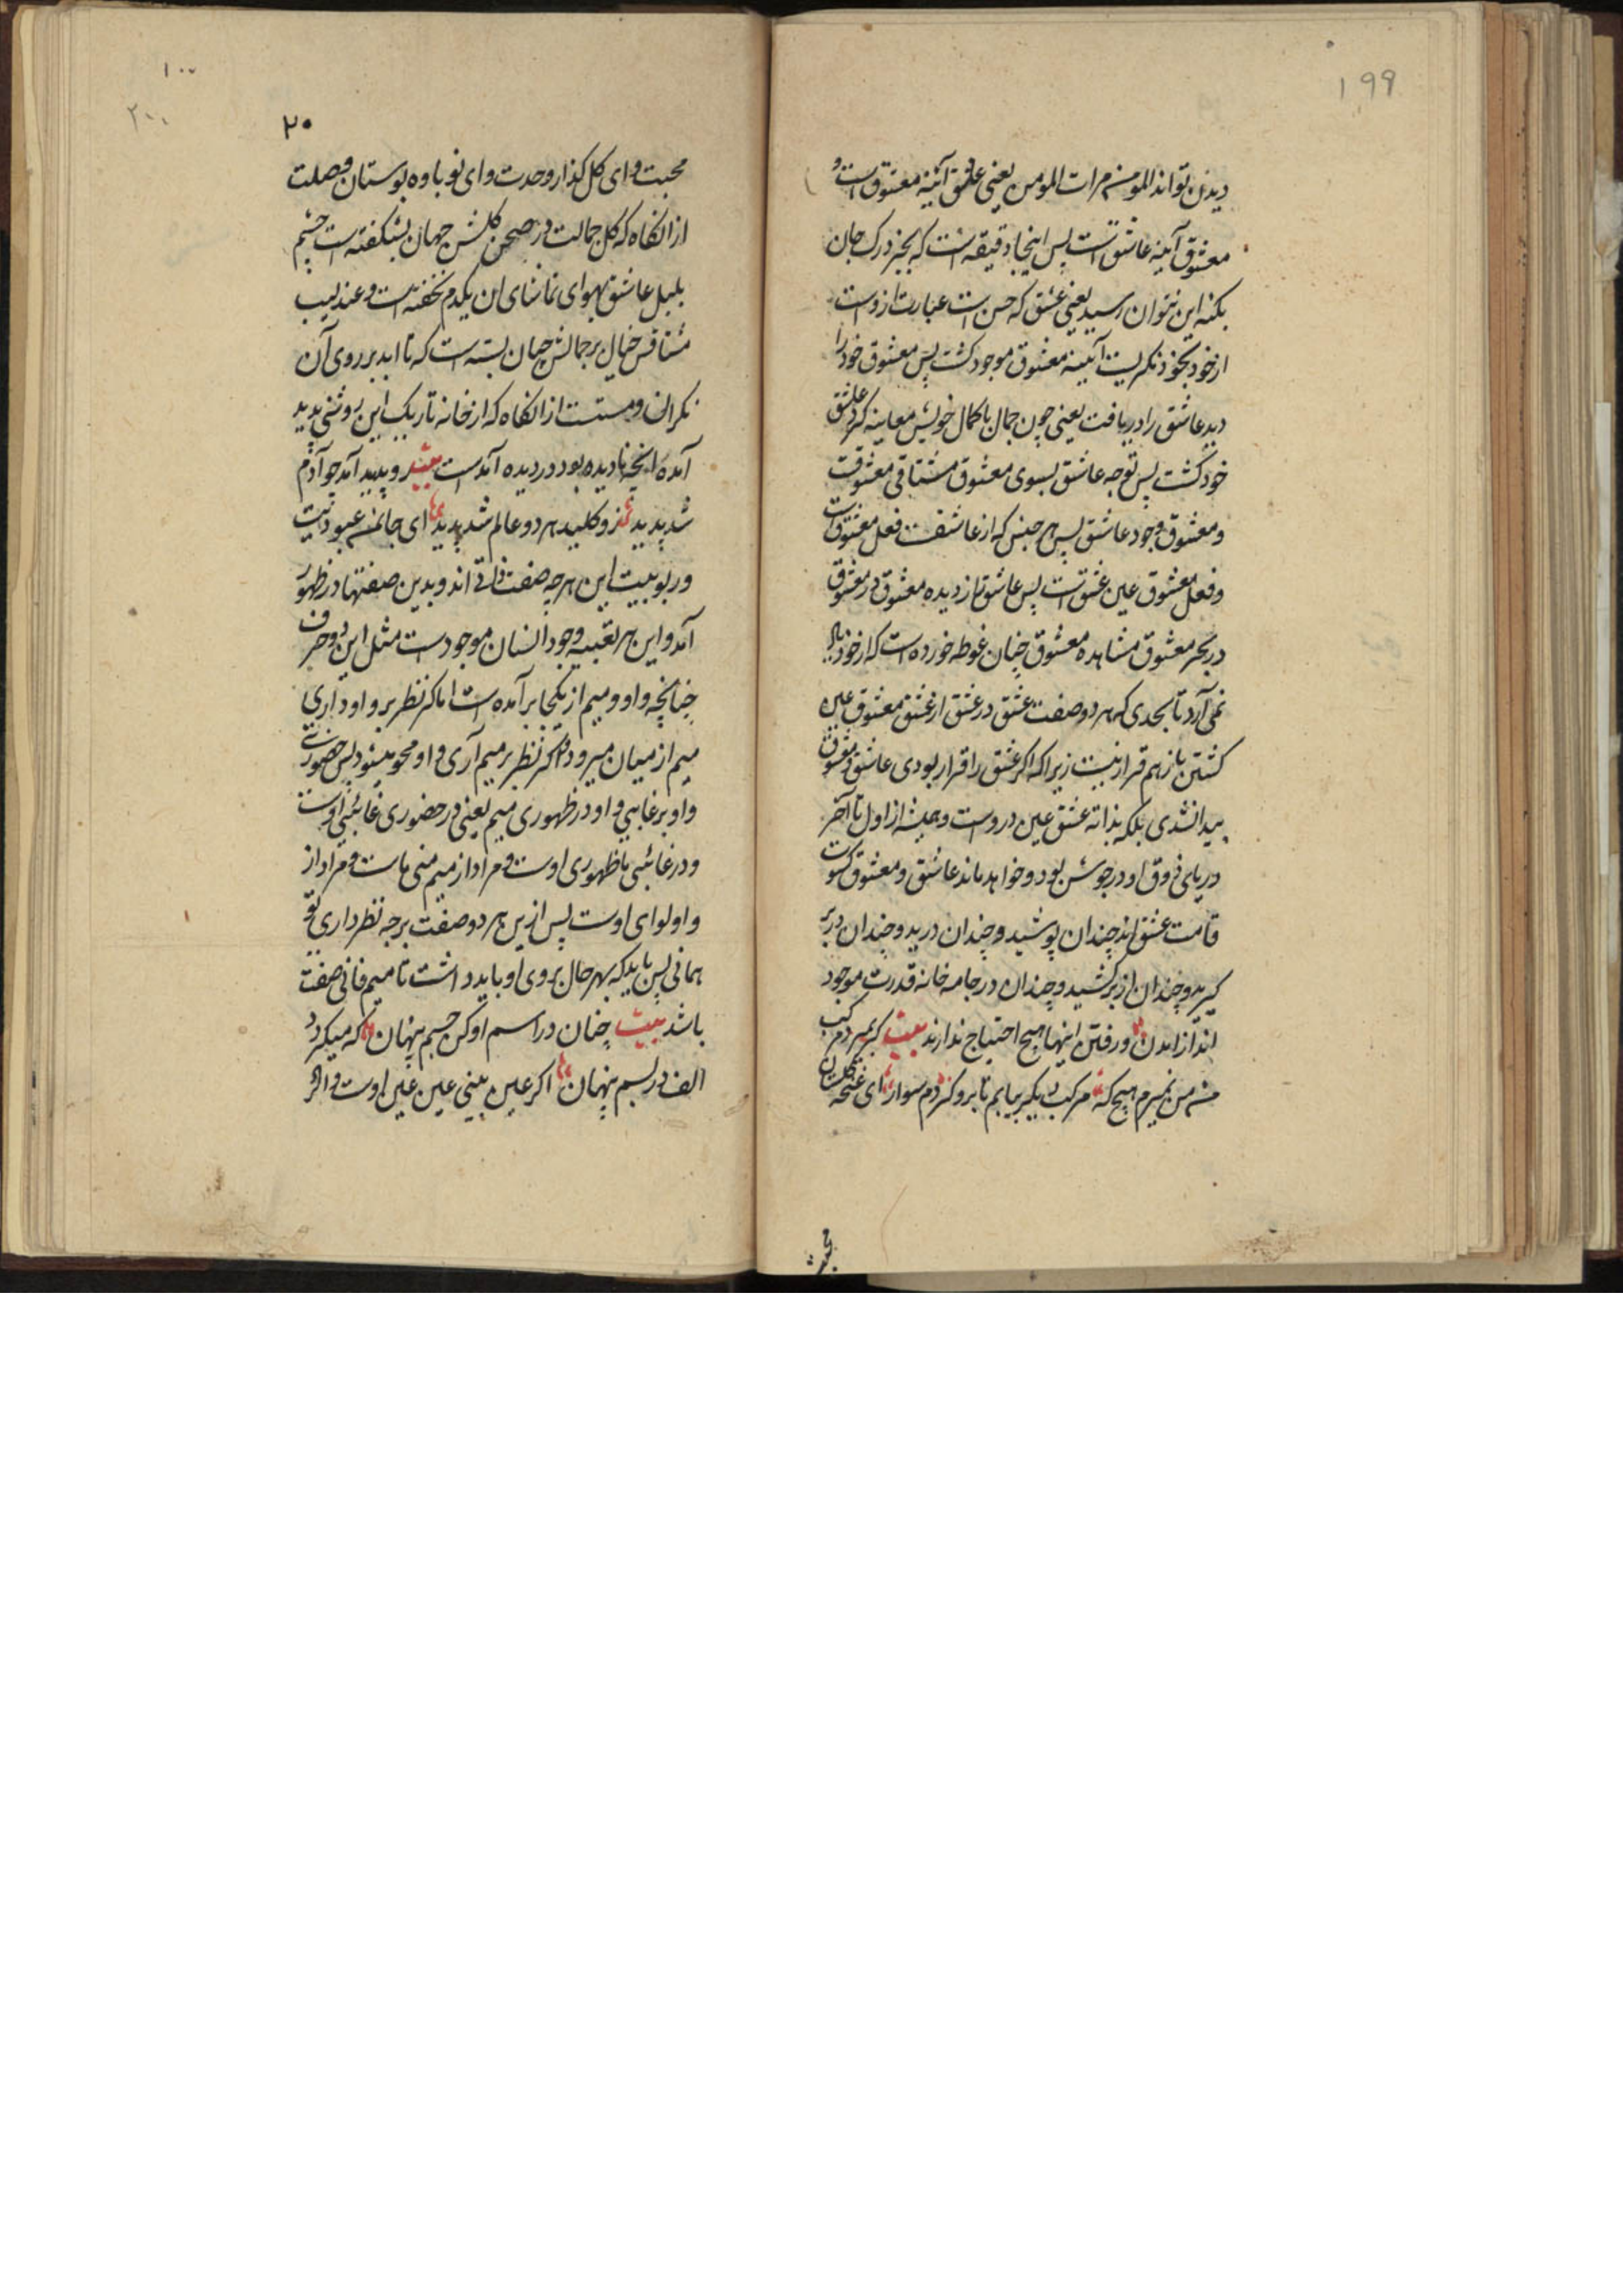 199
دیدن تواند المومن مرات المومن یعنی عاشق آئینه معشوق است و
معشوق آینه عاشق است پس اینجا دقیقه است که بجز درک جان
بکنه این نتوان رسید یعنی عشق که حسن است عبارت ازوست
از خود بخود نگریست آیینه معشوق موجود کشت پس معشوق خود را
دید عاشق را دریافت یعنی چون جمال باکمال خویش معاینه کرد عاشق
خود کشت پس توجه عاشق بسوی معشوق مشتاقی معشوقست
و معشوق وجود عاشق پس هر جنبس که از عاشقست فعل معشوق است
و فعل معشوق عین عشق است پس عاشق تا از دیده معشوق در معشوق
در بحر معشوق مشاهده معشوق چنان غوطه خورده است که از خود یاد
نمی آرد تا بحدی که هر دو صفت عشق در عشق از عشق معشوق عین
کشتن باز هم قرار نیست زیرا که اکر عشق را قرار بودی عاشق و معشوق
پیدا نشدی بلکه بذاته عشق عین دروست و همیشه از اول تا آخر
دریای ذوق او در جوشش بود و خواهد ماند عاشق و معشوق کسوت
قامت عشق اند چندان پوشید و چندان درید و چندان در بر
کیرید و چندان از بر کشید و چندان در جامه خانه قدرت موجود
اند از آمدن و رفتن اینها هیچ احتیاج ندارند بیت کر بمیرد مرکب
من من نمیرم هیچ که مرکب دیکر بیابم تا برو کردم سوار ای غنچه گلستان
محبت
۱۰۰
۲۰۰
۲۰
محبت و ای کل کذار وحدت و ای نو باوه بوستان وصلت
از انکاه که کل جمالت در صحن کلشن جهان بشکفته است چشم
بلبل عاشق بهوای تماشای ان یکدم نخفته است و عندلیب
مشتاقش خیال بر جمالش چنان بسته است که تا ابد بر روی آن
نکران و مستست از انکاه که از خانه تاریک این روشنی پدید
آمده انچه نادیده بود در دیده آمدست بیت رو پدید آمد چو آدم
شد پدید زو کلید هر دو عالم شد پدید ای جان من عبودیت
و ربوبیت این هر چه صفت ذاتی اند و بدین صفتها در ظهور
آمد و این هر تعبیه وجود انسان موجودست مثل این دو حرف
چنانچه واو و میم از یکجا برآمده است اما کر نظر بر واو داری
میم از میان میرود و اکر نظر بر میم آری واو محو میشود پس حضورتی
واو بر غایبی واو در ظهوری میم یعنی در حضوری غائبی اوست
و در غائبی ما ظهوری اوست و مراد از میم منی ماست و مراد از
واو لوای اوست پس ازین هر دو صفت بر چه نظر داری تو
همانی پس باید که بهر حال روی او باید داشت تا میم فانی صفت
باشد بیت چنان در اسم او کن جسم پنهان که میکردد
الف در بسم پنهان اکر عین بینی عین عین اوست و اکر